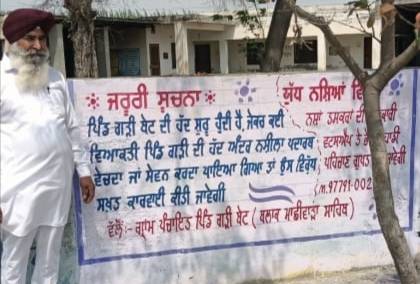 ਜ਼ਰੂਰੀ ਸੂਚਨਾ
ਪਿੰਡ ਗੜੀ ਬੇਟ ਦੀ ਹੱਦ ਸ਼ੁਰੂ ਹੁੰਦੀ ਹੈ ਜੇਕਰ ਕੋਈ
ਵਿਅਕਤੀ ਪਿੰਡ ਗੜੀ ਦੀ ਹੱਦ ਅੰਦਰ ਨਸ਼ੀਲਾ ਪਦਾਰਥ
ਵੇਚਦਾ ਜਾਂ ਸੇਵਨ ਕਰਦਾ ਪਾਇਆ ਗਿਆ ਤਾਂ ਉਸ ਵਿਰੁੱਧ
ਸਖ਼ਤ ਕਾਰਵਾਈ ਕੀਤੀ ਜਾਵੇਗੀ
ਵੱਲੋਂ :- ਗ੍ਰਾਮ ਪੰਚਾਇਤ ਪਿੰਡ ਗੜੀ ਬੇਟ ( ਬਲਾਕ ਮਾਛੀਵਾੜਾ ਸਾਹਿਬ )
ਯੁੱਧ ਨਸ਼ਿਆਂ ਵਿ
ਨਸ਼ਾ ਤਸਕਰਾਂ ਦੀ
ਵਟਸਐਪ ਤੇ
ਪਹਿਚਾਣ ਗੁਪਤ
m.97791-002